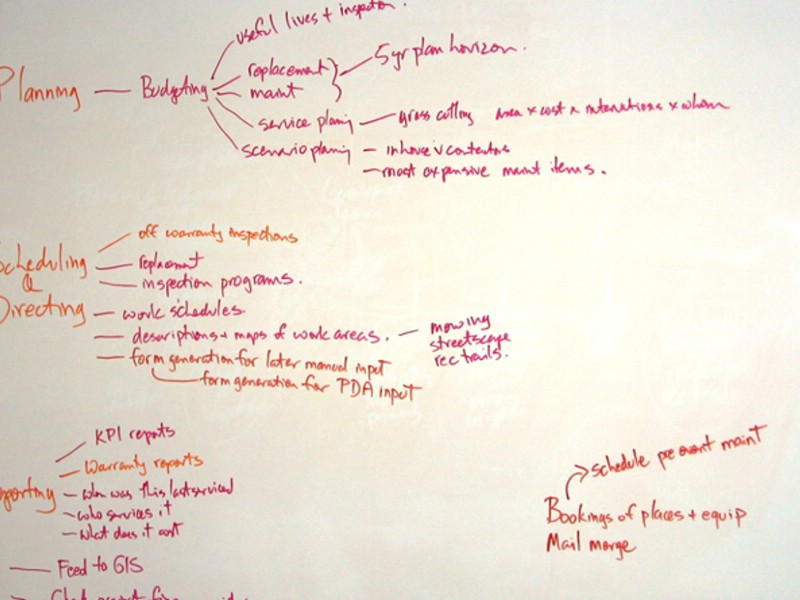 useful lives + inspection.
Planning — Budgeting
replacement
maint
5yr plan horizon.
service planing — grass cutting area x cost x rotenations x whom
scenario planing — inhouse v contractors
— most expensive maint items.
Scheduling
&
Directing
off warranty inspections
replacement
inspection programs.
work schedules.
descriptions + maps of work areas. — mowing
streetscape
rec trails.
form generation for later manual input
form generation for PDA input
KPI reports
Warranty reports
when was this last serviced
who services it
what does it cost
Feed to GIS
schedule pre event maint
Bookings of places + equip
Mail merge